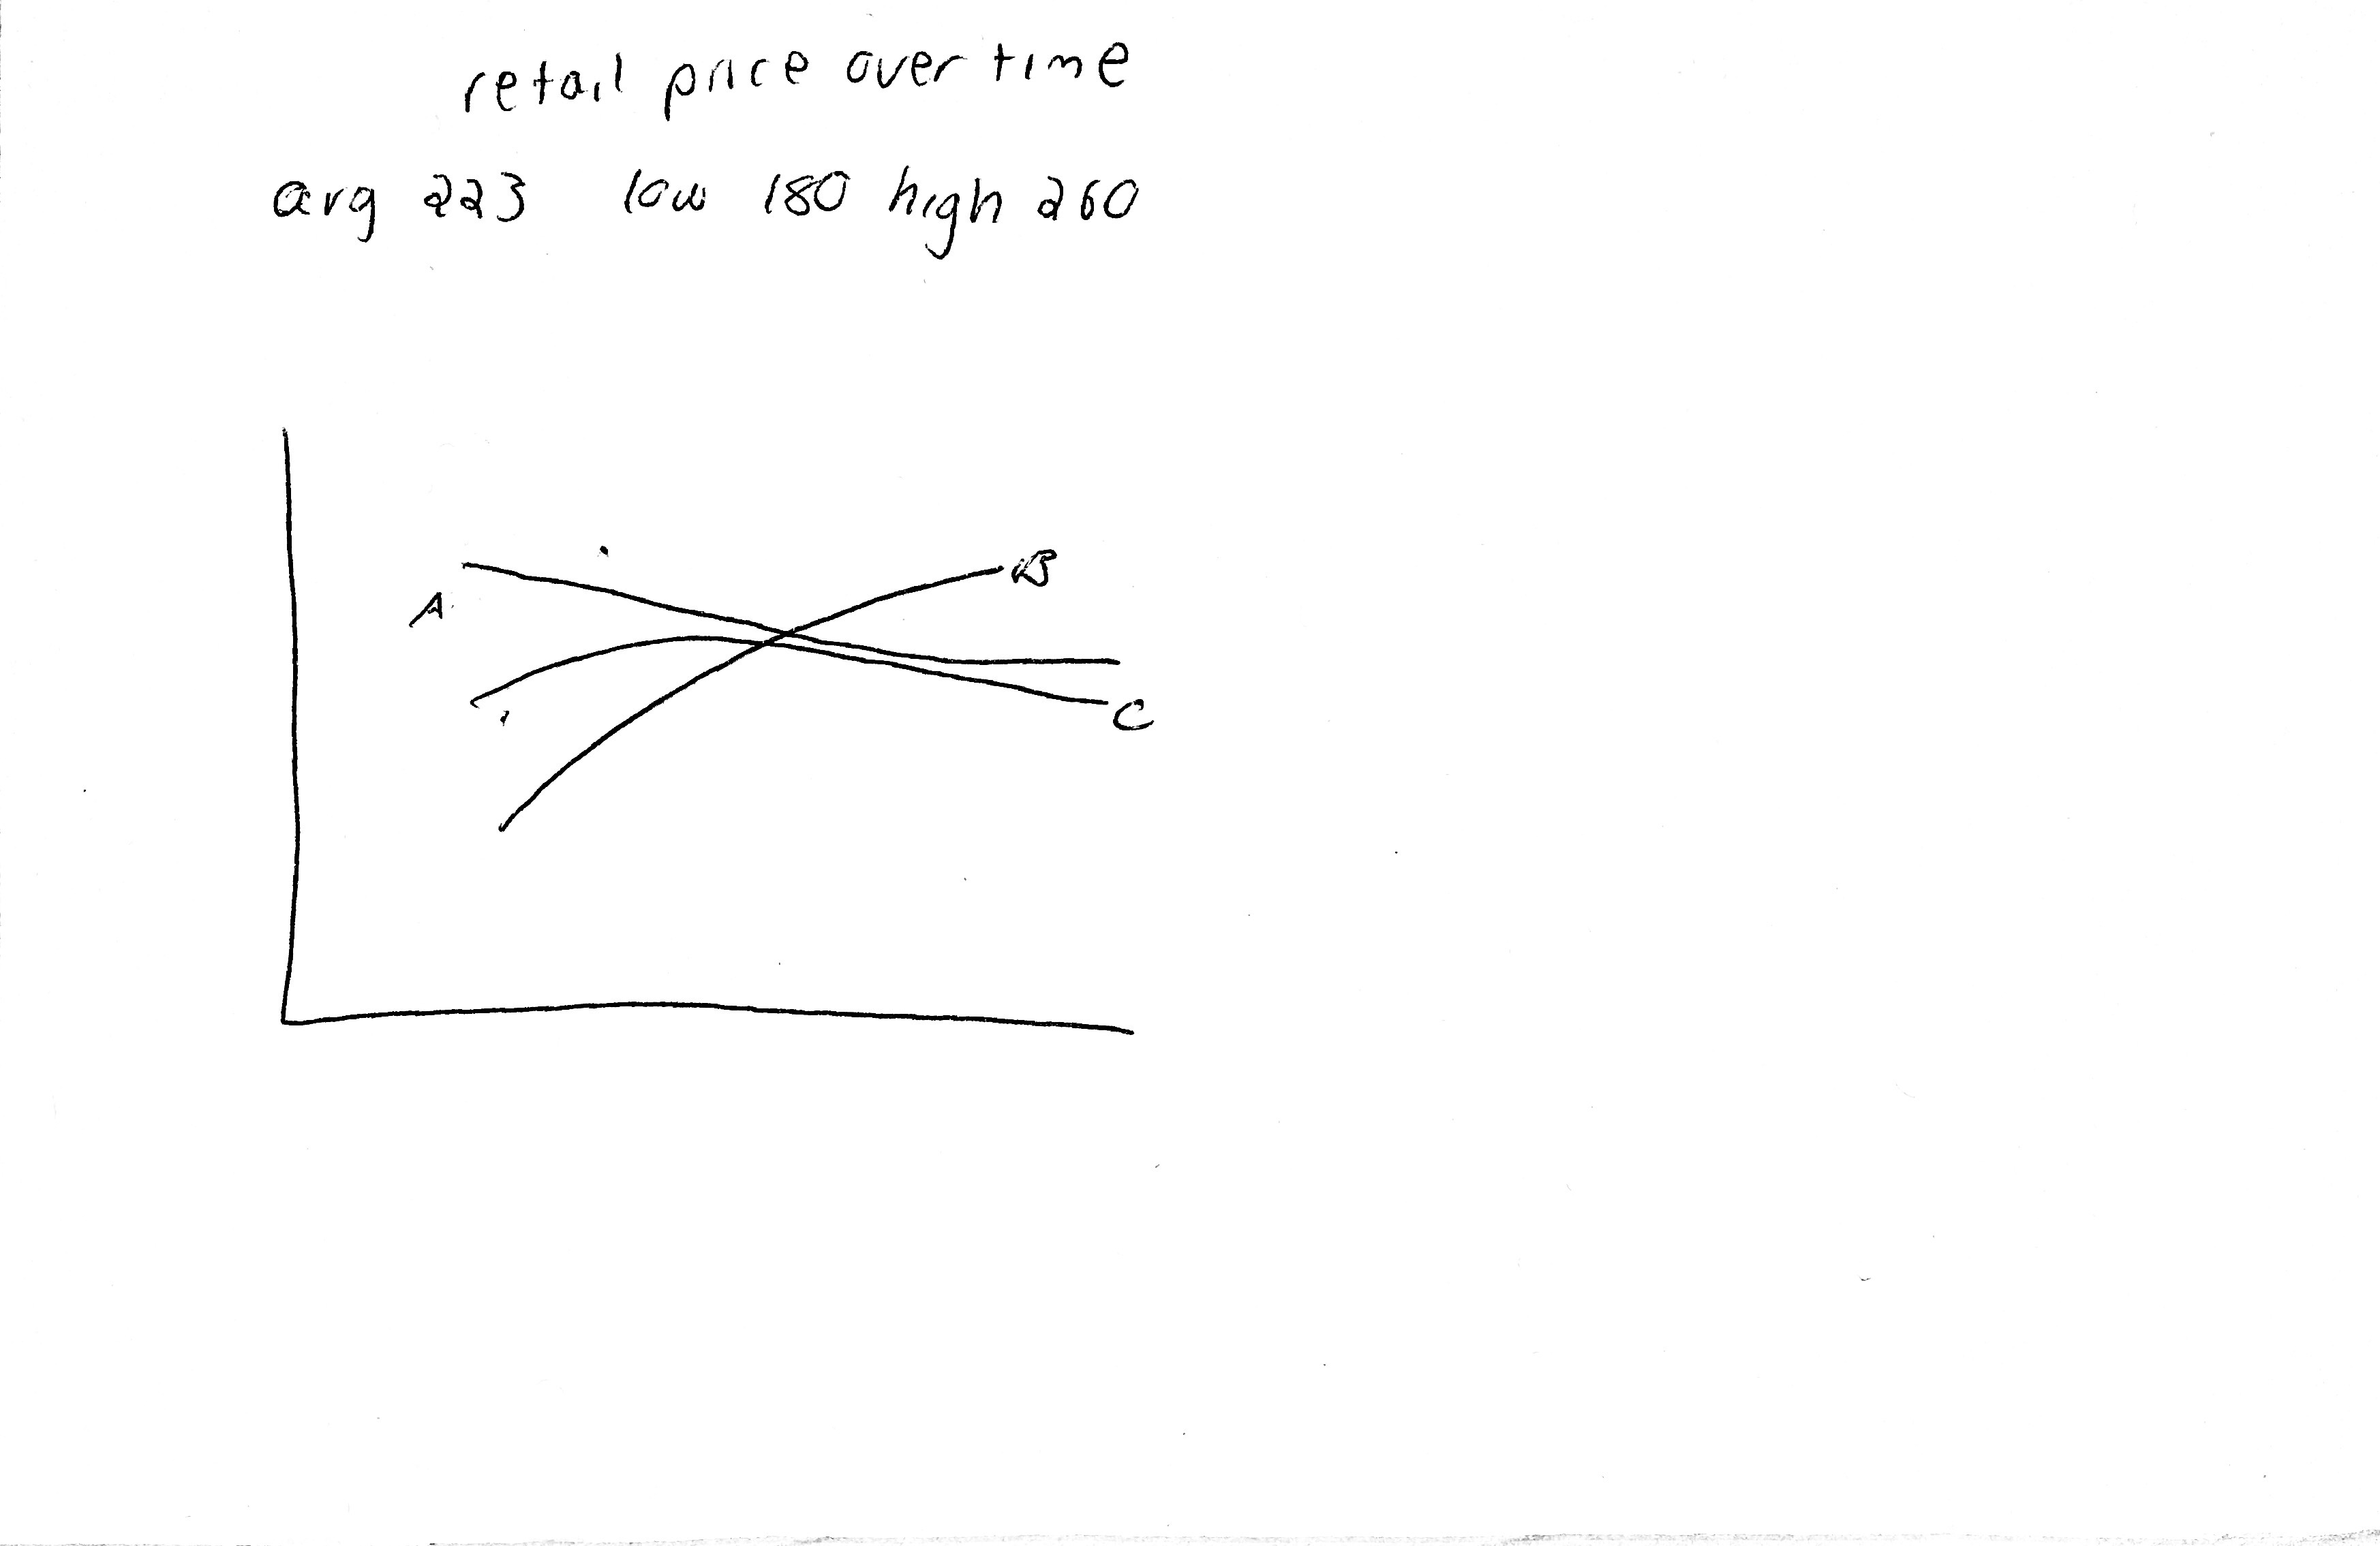 retail price over time
avg 223 low 180 high 260
A
B
C